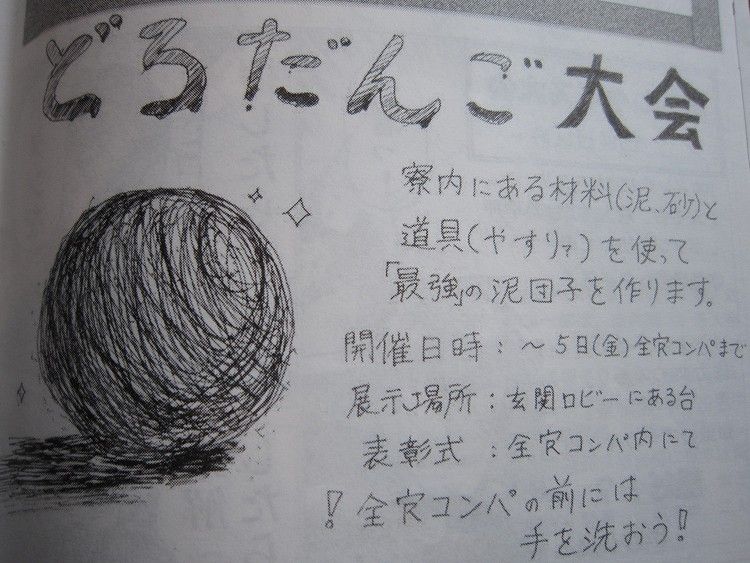 どろだんご大会
寮内にある材料(泥、砂)と
道具(やすり?)を使って
「最強」の泥団子を作ります。
開催日時：～5日(金)全穴コンパまで
展示場所：玄関ロビーにある台
表彰式：全穴コンパ内にて
!全穴コンパの前には
手を洗おう!